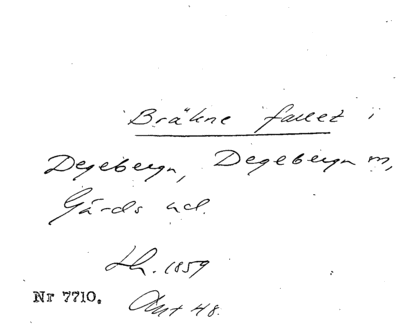 Bräkne fallet i
Degeberga, Degeberga m,
Gärds hd.
Lh. 1859
Nr 7710. Ant 48.